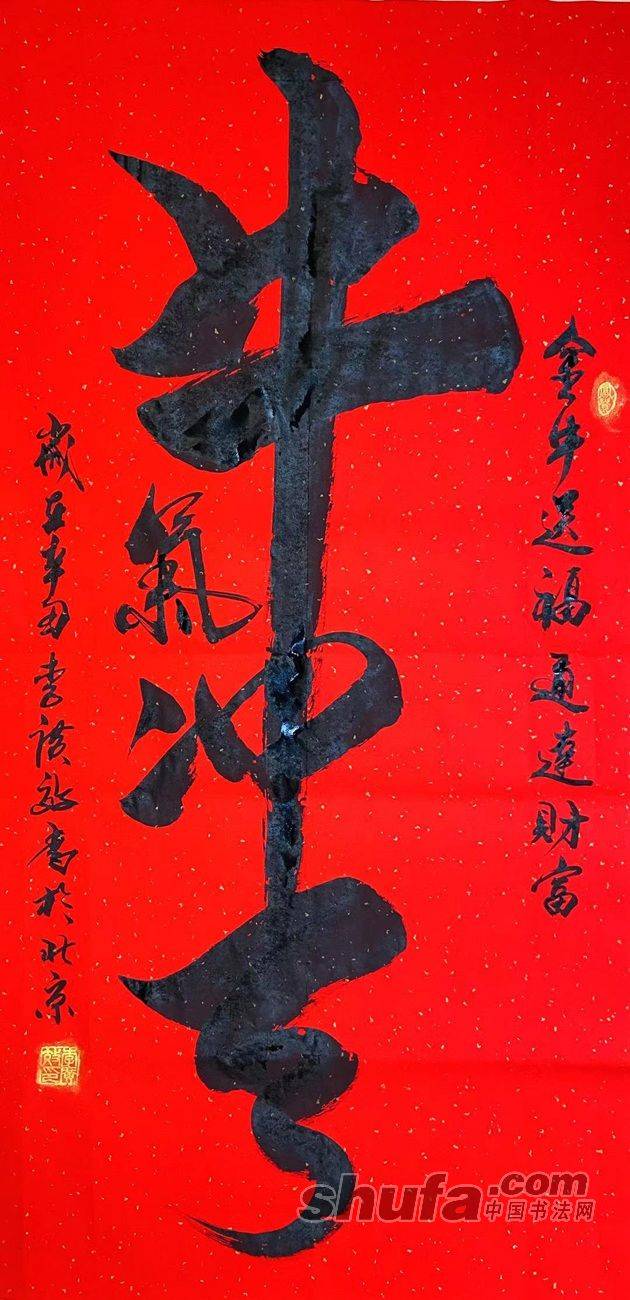 金牛送福通達财富
牛氣冲天
歲在辛丑李書於北京
shufa.com
中国书法网